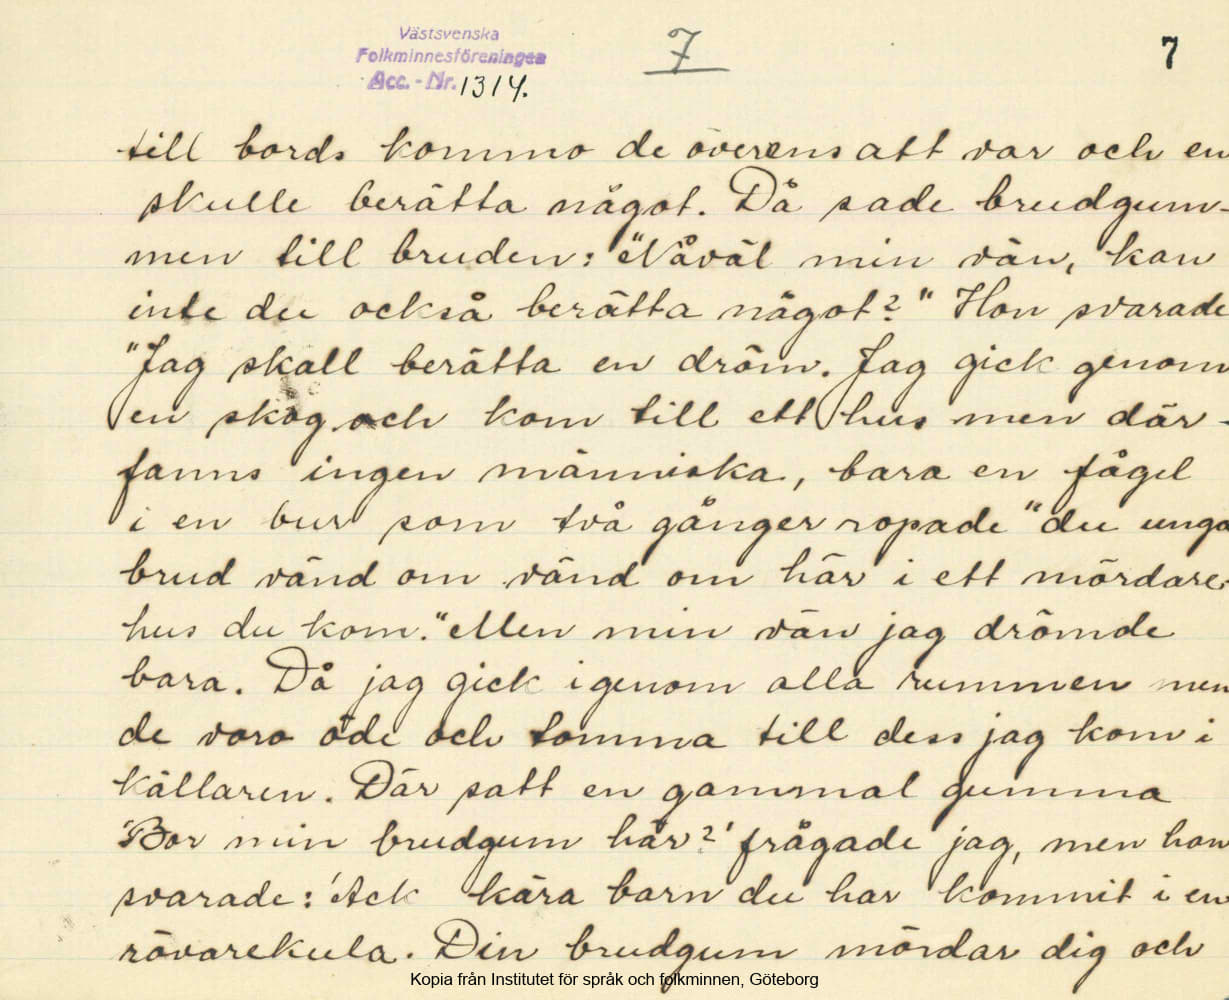 Västsvenska
Folkminnesföreningen
Acc. - Nr. 1314.
7
7
till bords kommo de överens att var och en
skulle berätta något. Då sade brudgum-
men till bruden: "Nåväl min vän, kan
inte du också berätta något?" Hon svarade
"Jag skall berätta en dröm. Jag gick genom
en skog och kom till ett hus men där-
fanns ingen människa, bara en fågel
i en bur som två gånger ropade "du unga
brud vänd om vänd om här i ett mördare-
hus du kom." Men min vän jag drömde
bara. Då jag gick igenom alla rummen men
de voro öde och tomma till dess jag kom i
källaren. Där satt en gammal gumma
'Bor min brudgum här?' frågade jag, men hon
svarade: 'Ack kära barn du har kommit i en
rövarekula. Din brudgum mördar dig och
Kopia från Institutet för språk och folkminnen, Göteborg